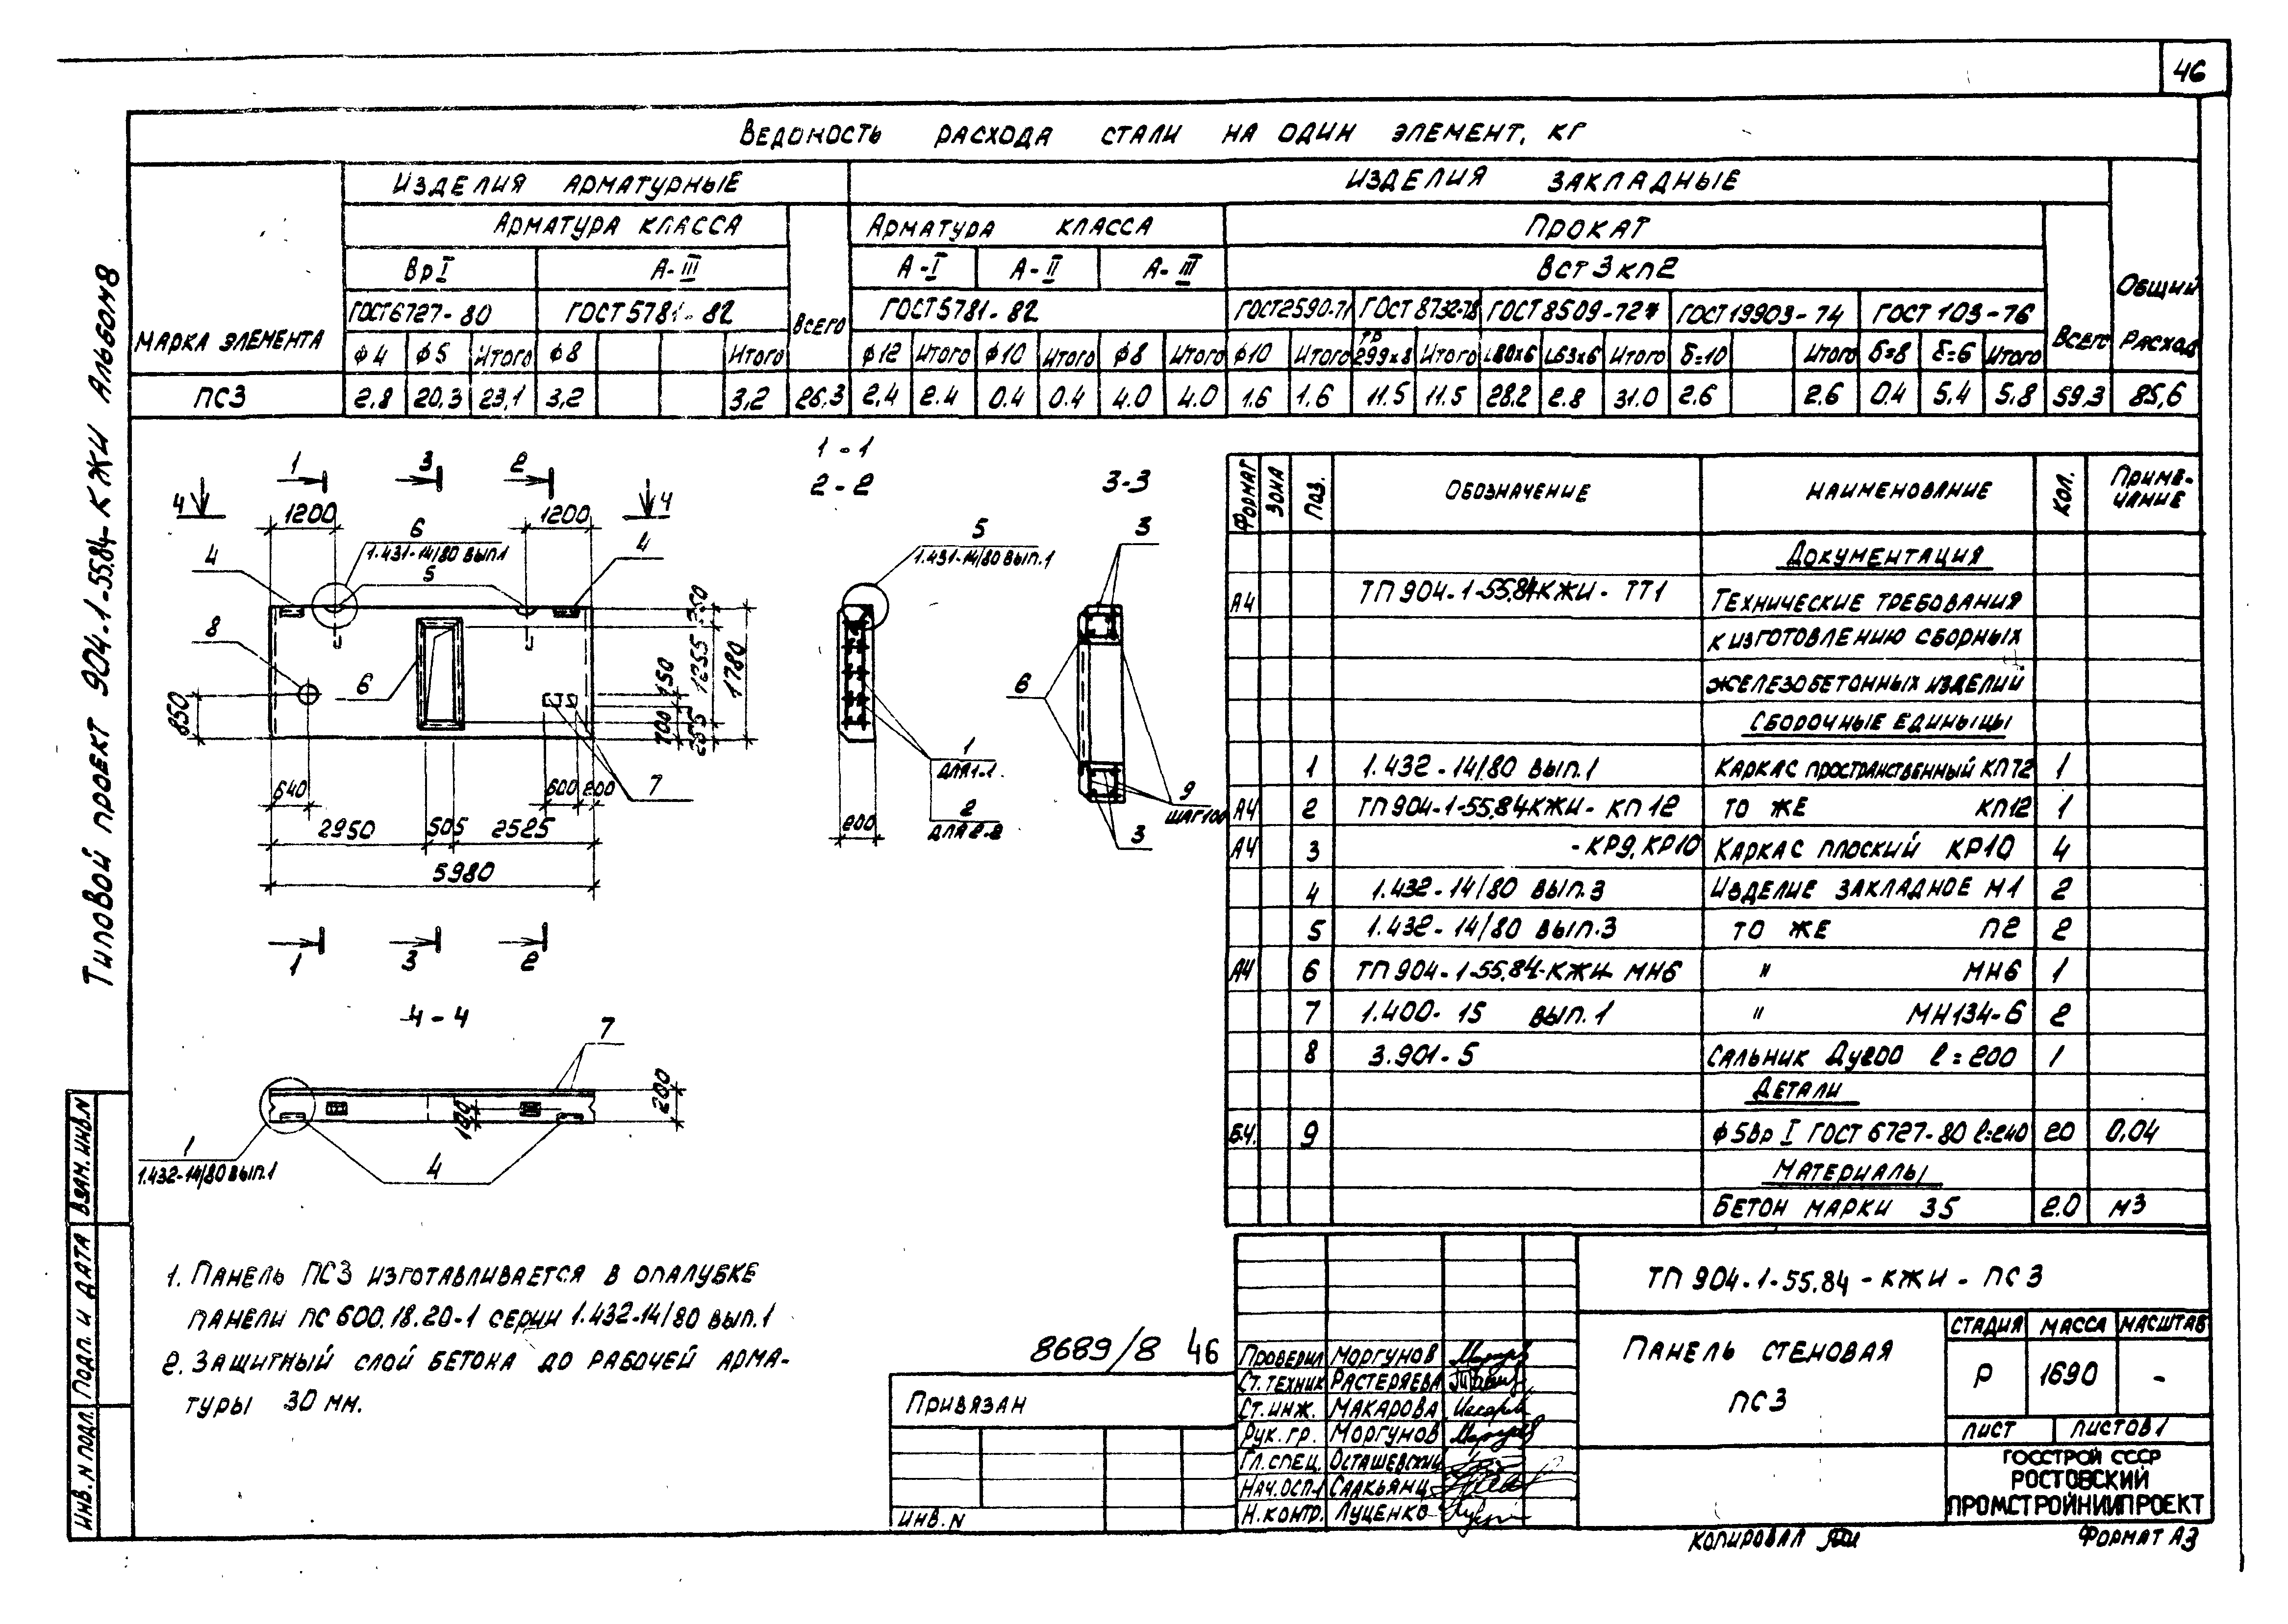 46
Типовой проект 904-1-55.84-КЖИ Альбом 8
Ведомость расхода стали на один элемент, кг
Марка элемента
Изделия арматурные
Изделия закладные
Общий расход
Арматура класса
Всего
Арматура класса
Прокат
Всего
Вр I
А-III
А-I
А-II
А-III
ВСт3кп2
ГОСТ 6727-80
ГОСТ 5781-82
ГОСТ 5781-82
ГОСТ 2590-71
ГОСТ 8732-78
ГОСТ 8509-72*
ГОСТ 19903-74
ГОСТ 103-76
ф4 ф5 Итого ф8 Итого ф12 Итого ф10 Итого ф8 Итого ф10 Итого тр 299х8 Итого L80х6 L63х6 Итого δ=10 Итого δ=8 δ=6 Итого
ПС3 2.8 20.3 23,1 3,2 3,2 26,3 2,4 2.4 0.4 0.4 4.0 4.0 1.6 1.6 11.5 11.5 28.2 2.8 31.0 2.6 2.6 0.4 5.4 5.8 59,3 85,6
1 3 2
4 4
1200 1200
6
1.431-14/80 вып.1
4 5 4
8
6
850
250
1255
1780
150
700
255
640
600 200
7
2950 505 2525
5980
1 3 2
1-1
2-2
5
1.431-14/80 вып.1
1
для 1-1
2
для 2-2
200
3-3
3
6
9
шаг 100
3
4-4
7
200
100
1
1.432-14/80 вып.1
4
Формат Зона Поз. Обозначение Наименование Кол. Примечание
Документация
А4 ТП 904-1-55.84КЖИ-ТТ1 Технические требования
к изготовлению сборных
железобетонных изделий
Сборочные единицы
1 1.432-14/80 вып.1 Каркас пространственный КП72 1
А4 2 ТП 904-1-55.84КЖИ-КП12 то же КП12 1
А4 3 -КР9, КР10 Каркас плоский КР10 4
4 1.432-14/80 вып.3 Изделие закладное М1 2
5 1.432-14/80 вып.3 то же П2 2
А4 6 ТП 904-1-55.84-КЖИ МН6 " МН6 1
7 1.400-15 вып.1 " МН134-6 2
8 3.901-5 Сальник Ду200 l=200 1
Детали
Б.Ч. 9 ф5Вр I ГОСТ 6727-80 l=240 20 0,04
Материалы
Бетон марки 35 2.0 м3
1. Панель ПС3 изготавливается в опалубке
панели ПС 600.18.20-1 серии 1.432-14/80 вып.1
2. Защитный слой бетона до рабочей арма-
туры 30 мм.
8689/8 46
Привязан
Инв. N
Проверил Моргунов
Ст. техник Растеряева
Ст. инж. Макарова
Рук. гр. Моргунов
Гл. спец. Осташевский
Нач. ОСП-1 Садкьянц
Н. контр. Луценко
ТП 904-1-55.84-КЖИ-ПС3
Панель стеновая
ПС3
Стадия Масса Масштаб
Р 1690 -
Лист Листов 1
ГОССТРОЙ СССР
РОСТОВСКИЙ
ПРОМСТРОЙНИИПРОЕКТ
Копировал
Формат А3
Взам. инв. N
Подп. и дата
Инв. N подл.